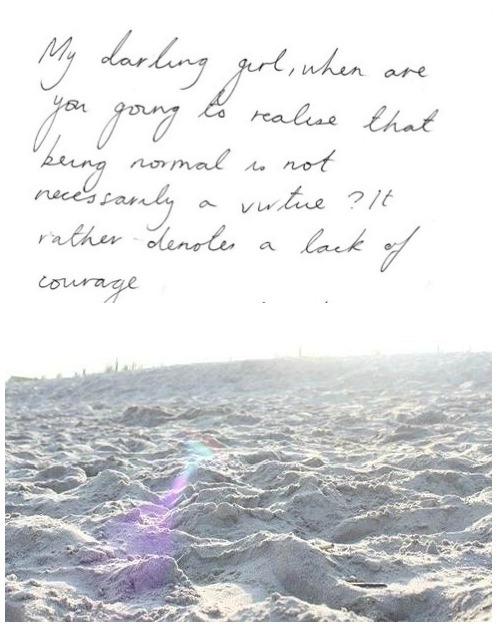 My darling girl, when are
you going to realise that
being normal is not
necessarily a virtue ? It
rather denotes a lack of
courage